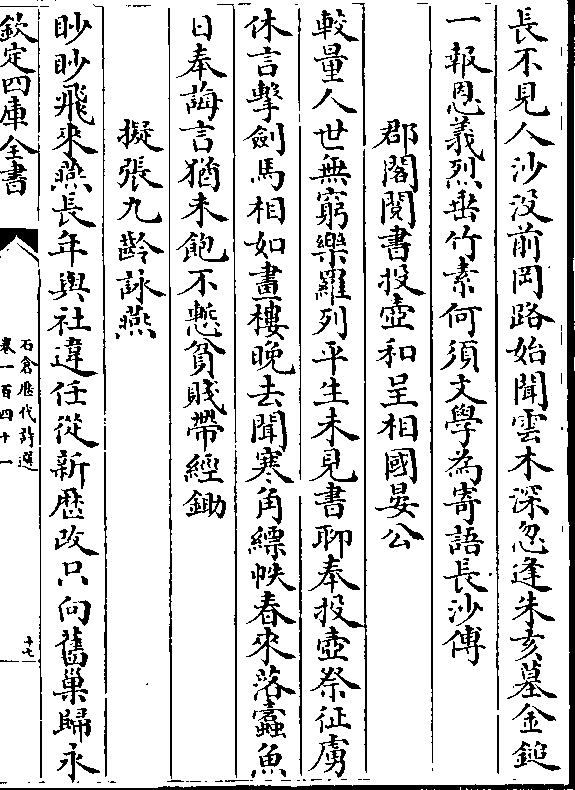 長不見人沙没前岡路始聞雲木深忽逢朱亥墓金鎚
一報恩義烈垂竹素何須文學為寄語長沙傅
郡閣閱書投壺和呈相國晏公
較量人世無窮樂羅列平生未見書聊奉投壺祭征虜
休言擊劒馬相如畫樓晩去聞寒角縹帙春來落蠹魚
日奉誨言猶未飽不慙貧賤帶經鋤
擬張九齡詠燕
眇眇飛來燕長年與社違任從新厯改只向舊巢歸永
欽定四庫全書
石倉歴代詩選
卷一百四十一
十七